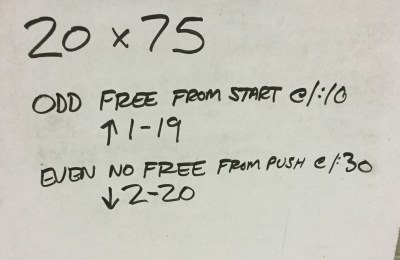 20 x 75
ODD FREE FROM START @/:10
↑1-19
EVEN NO FREE FROM PUSH @/:30
↓2-20